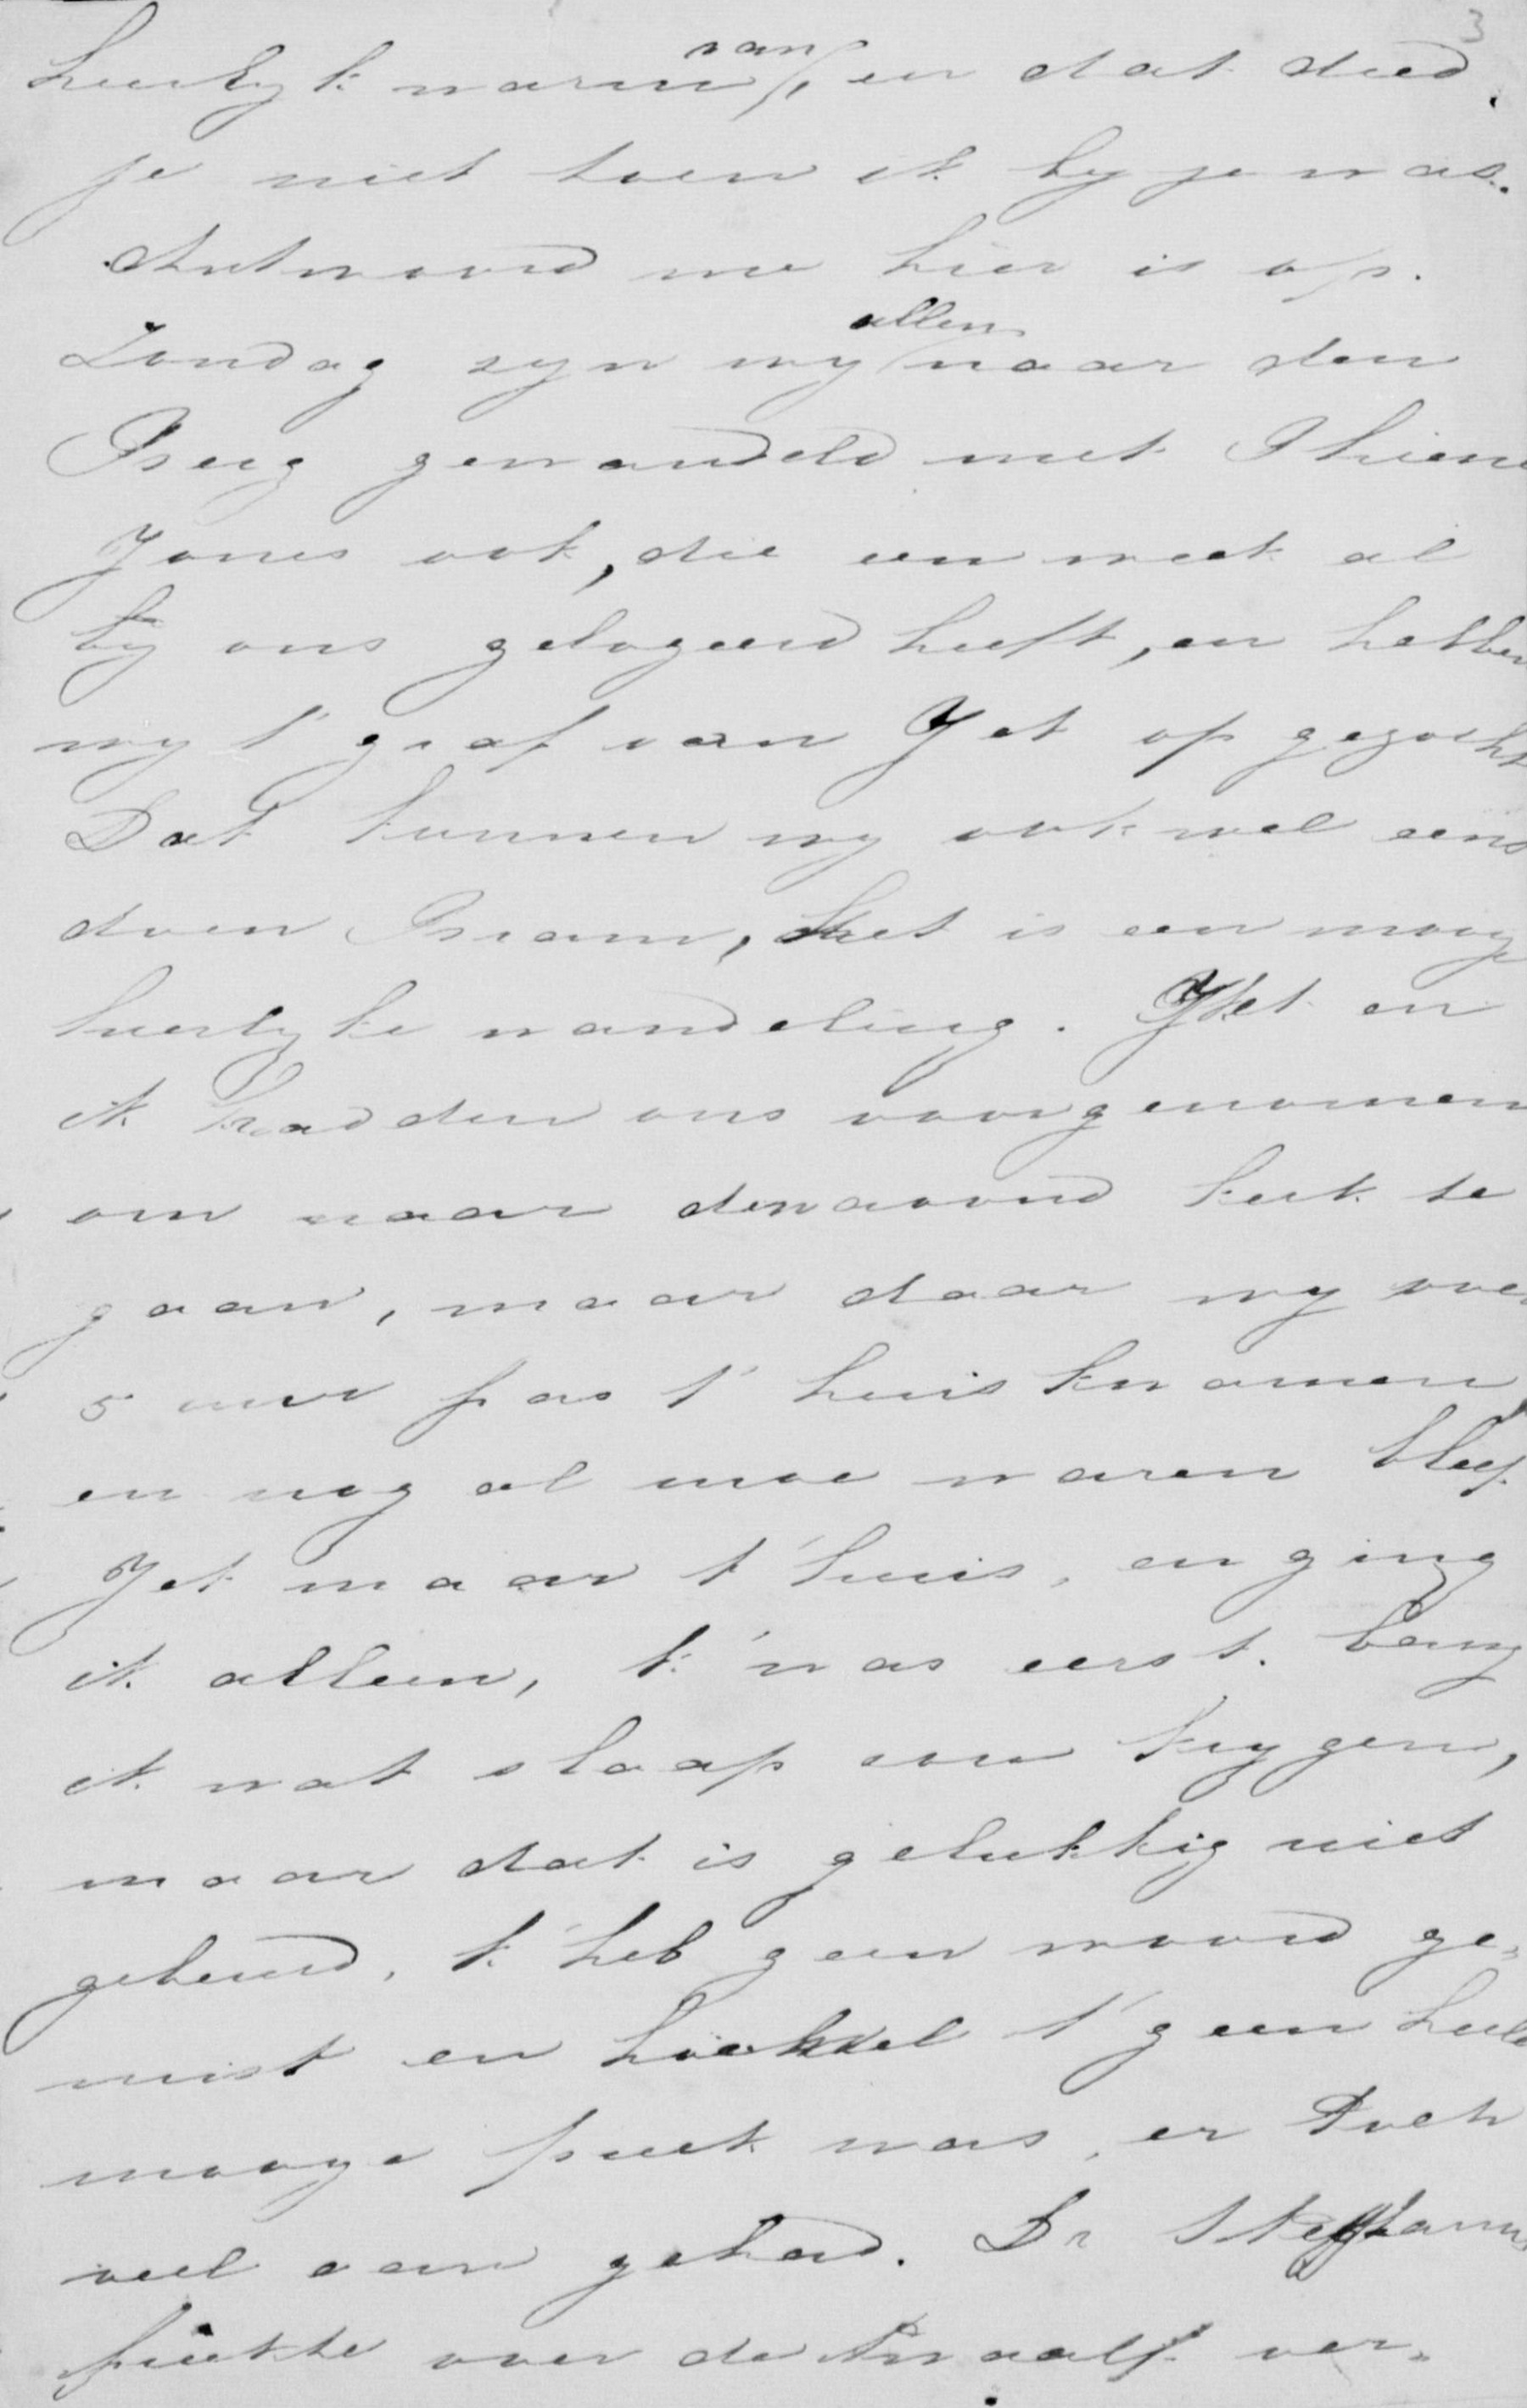 3
heerlyk warm van, en dat deed
je niet toen ik by je was.
Antwoord me hier is op.
Zondag zyn wy allen naar den
Berg gewandeld met Thiene
Jones ook, die een week al
by ons gelogeerd heeft, en hebben
wy t' graf van Jet op gezocht
Dat kunnen wy ook wel eens
doen Bram, het is een mooy
heerlyke wandeling. Jet en
ik hadden ons voorgenomen
om naar den avond kerk te
gaan, maar daar wy over
5 uur pas t' huis kwamen
en nog al moe waren bleef
Jet maar t' huis, en ging
ik alleen, k' was eerst bang
ik wat slaap zou krygen,
maar dat is gelukkig niet
gebeurd, k' heb geen woord ge-
mist en hoewel t' geen heele
mooye preek was, er toch
veel aan gehad. Dr
preekte over de twaalf ver-